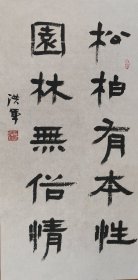 松柏有本性
園林無俗情
洪軍